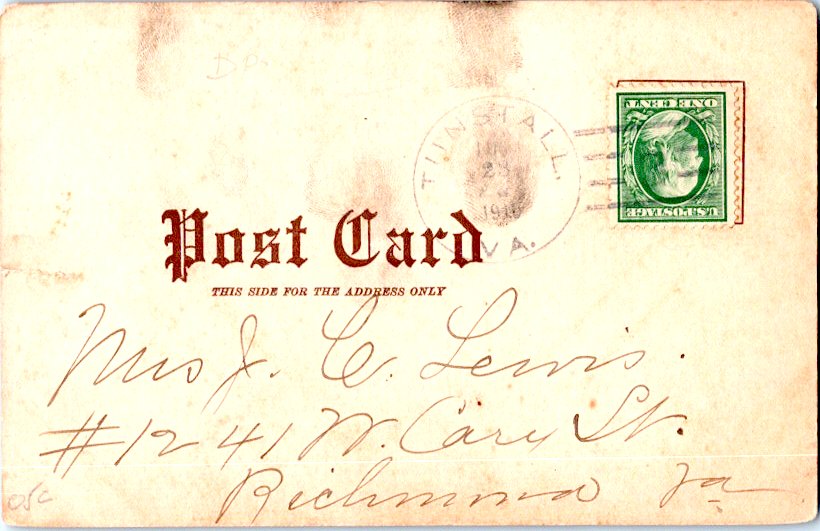 D.P.
TUNSTALL,
1910
VA.
ONE CENT
U.S. POSTAGE
Post Card
THIS SIDE FOR THE ADDRESS ONLY
Mrs J. C. Lewis.
#1241 W. Cary St.
Richmond Va